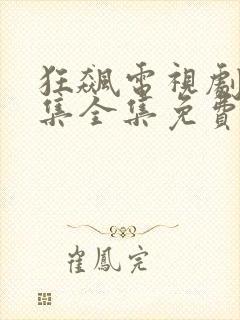 狂飆電視劇
集全集免費
崔鳳完